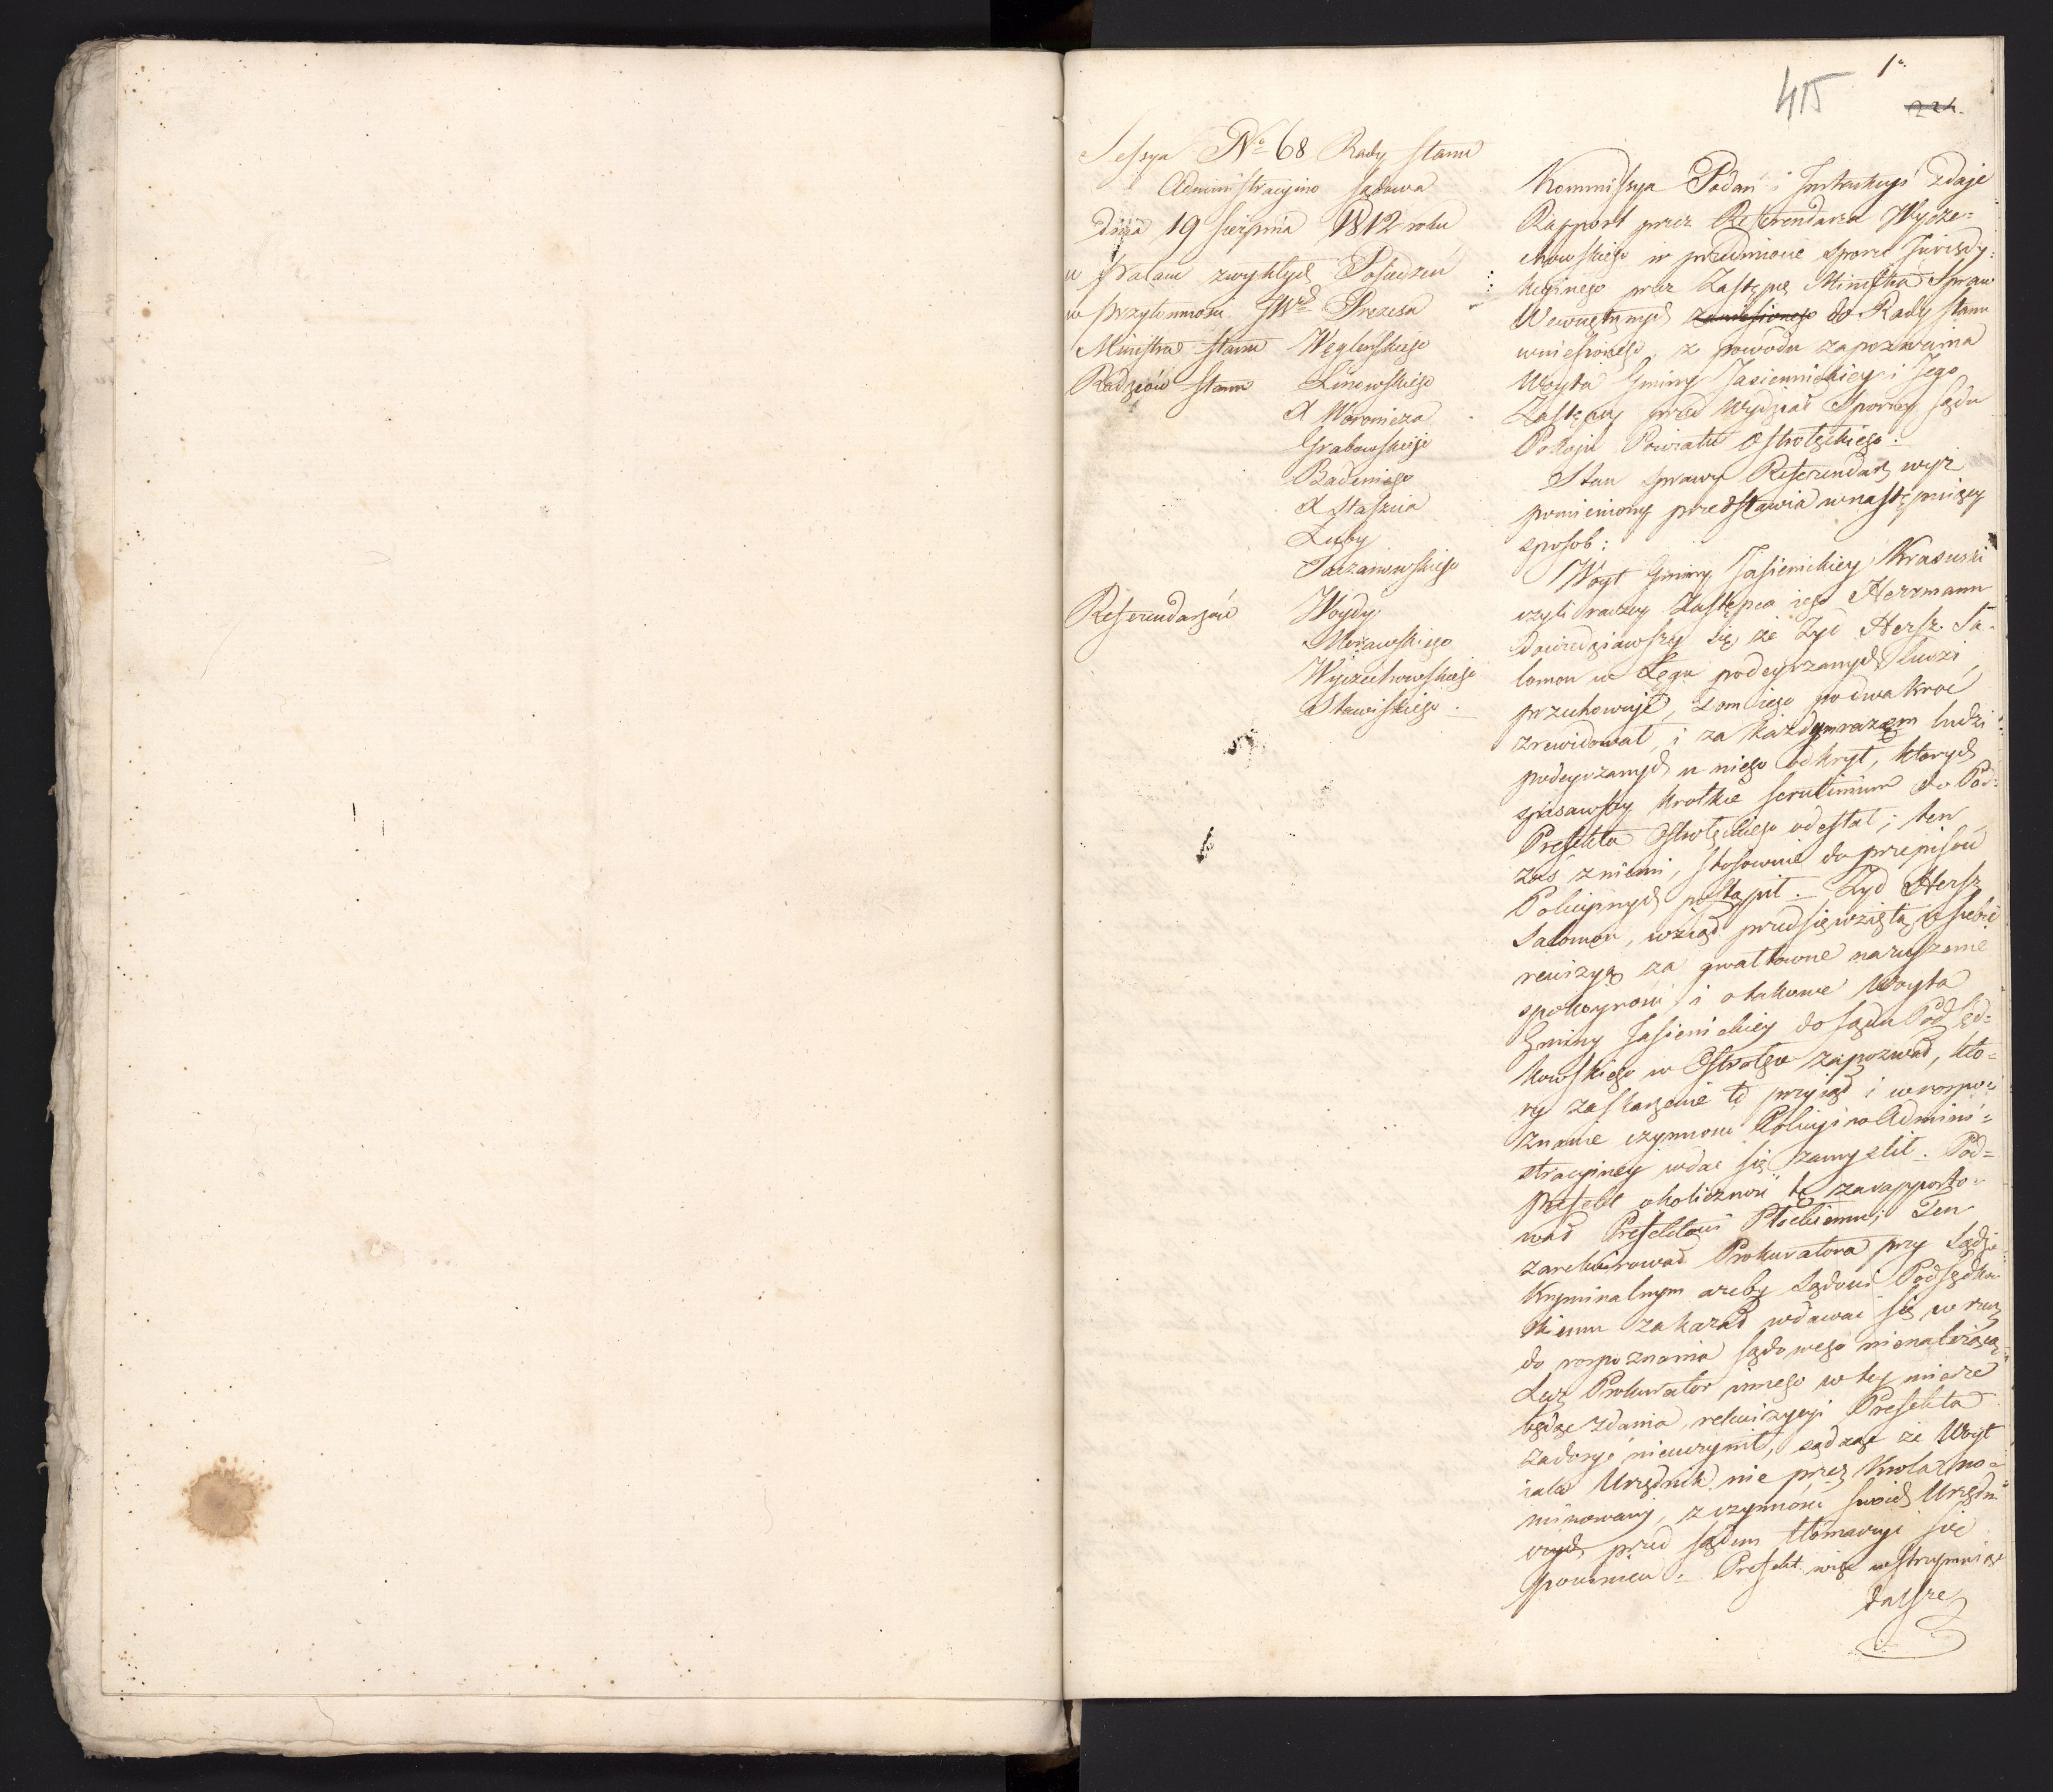 1º
415
224.
Sessya Nº 68 Rady Stanu
Administracyino Sądowa
Dnia 19 Sierpnia 1812 roku
w Pałacu zwykłych Posiedzeń
w przytomności JWch Prezesa
Ministra Stanu Węgleńskiego
Radzców Stanu Linowskiego
X Woronicza
Grabowskiego
Badeniego
X Staszica
Łuby
Taczanowskiego
Referendarzów Woydy
Morawskiego
Wyczechowskiego
Stawiskiego.
Kommissya Podań i Instrukcyi Zdaje
Rapport przez Referendarza Wycze=
chowskiego w przedmiocie sporu Jurisdy=
kcyinego przez Zastępcę Ministra Spraw
Wewnętrznych zaniesionego do Rady Stanu
wniesionego, z powodu zapozwania
Woyta Gminy Jasiennickiey i Jego
Zastępcy przed Wydział Sporny Sądu
Pokoju Powiatu Ostrołęckiego:
Stan sprawy Referendarz wyż
pomieniony przedstawia w następuiący
sposob:
Woyt Gminy Jasienickiey Krasuski
czyli raczey Zastępca iego Herrmann
dowiedziawszy się że Żyd Hersz Sa=
lomon w Łęgu podeyrzanych ludzi
przechowuje, Dom iego podwakroć
zrewidował, i za każdym razem ludzi
podeyrzanych u niego odkrył, których
spisawszy krótkie scrutinium do Pod=
Prefekta Ostrołęckiego odesłał; ten
zaś z niemi, stosownie do przepisów
Policyinych postąpił. Żyd Hersz
Salomon, wziął przedsięwziętą u siebie
rewizyą za gwałtowne naruszenie
spokoyności i o takowe Woyta
Gminy Jasienickiey do Sądu Podsęd=
kowskiego w Ostrołęce zapozwał, któ=
ry zaskarżenie to przyiął i w rozpo=
znanie czynności Policyino Admini=
stracyiney wdać się zamyślił. Pod=
Prefekt okoliczność tę zarapporto=
wał Prefektowi Płockiemu; Ten
zarekwirował Prokuratora przy Sądzie
Kryminalnym ażeby Sądowi Podsędkow
skiemu zakazał wdawać się w rzecz
do rozpoznania sądowego nienależącą
Lecz Prokurator innego w tey mierze
będąc zdania, rekwizycyi Prefekta
zadosyć nieuczynił, sądząc że Woyt
iako Urzędnik nie przez Króla no=
minowany, z czynności swoich Urzędo
wych przed Sądem tłómaczyć się
powinien. Prefekt więc wstrzymuiąc
dalsze